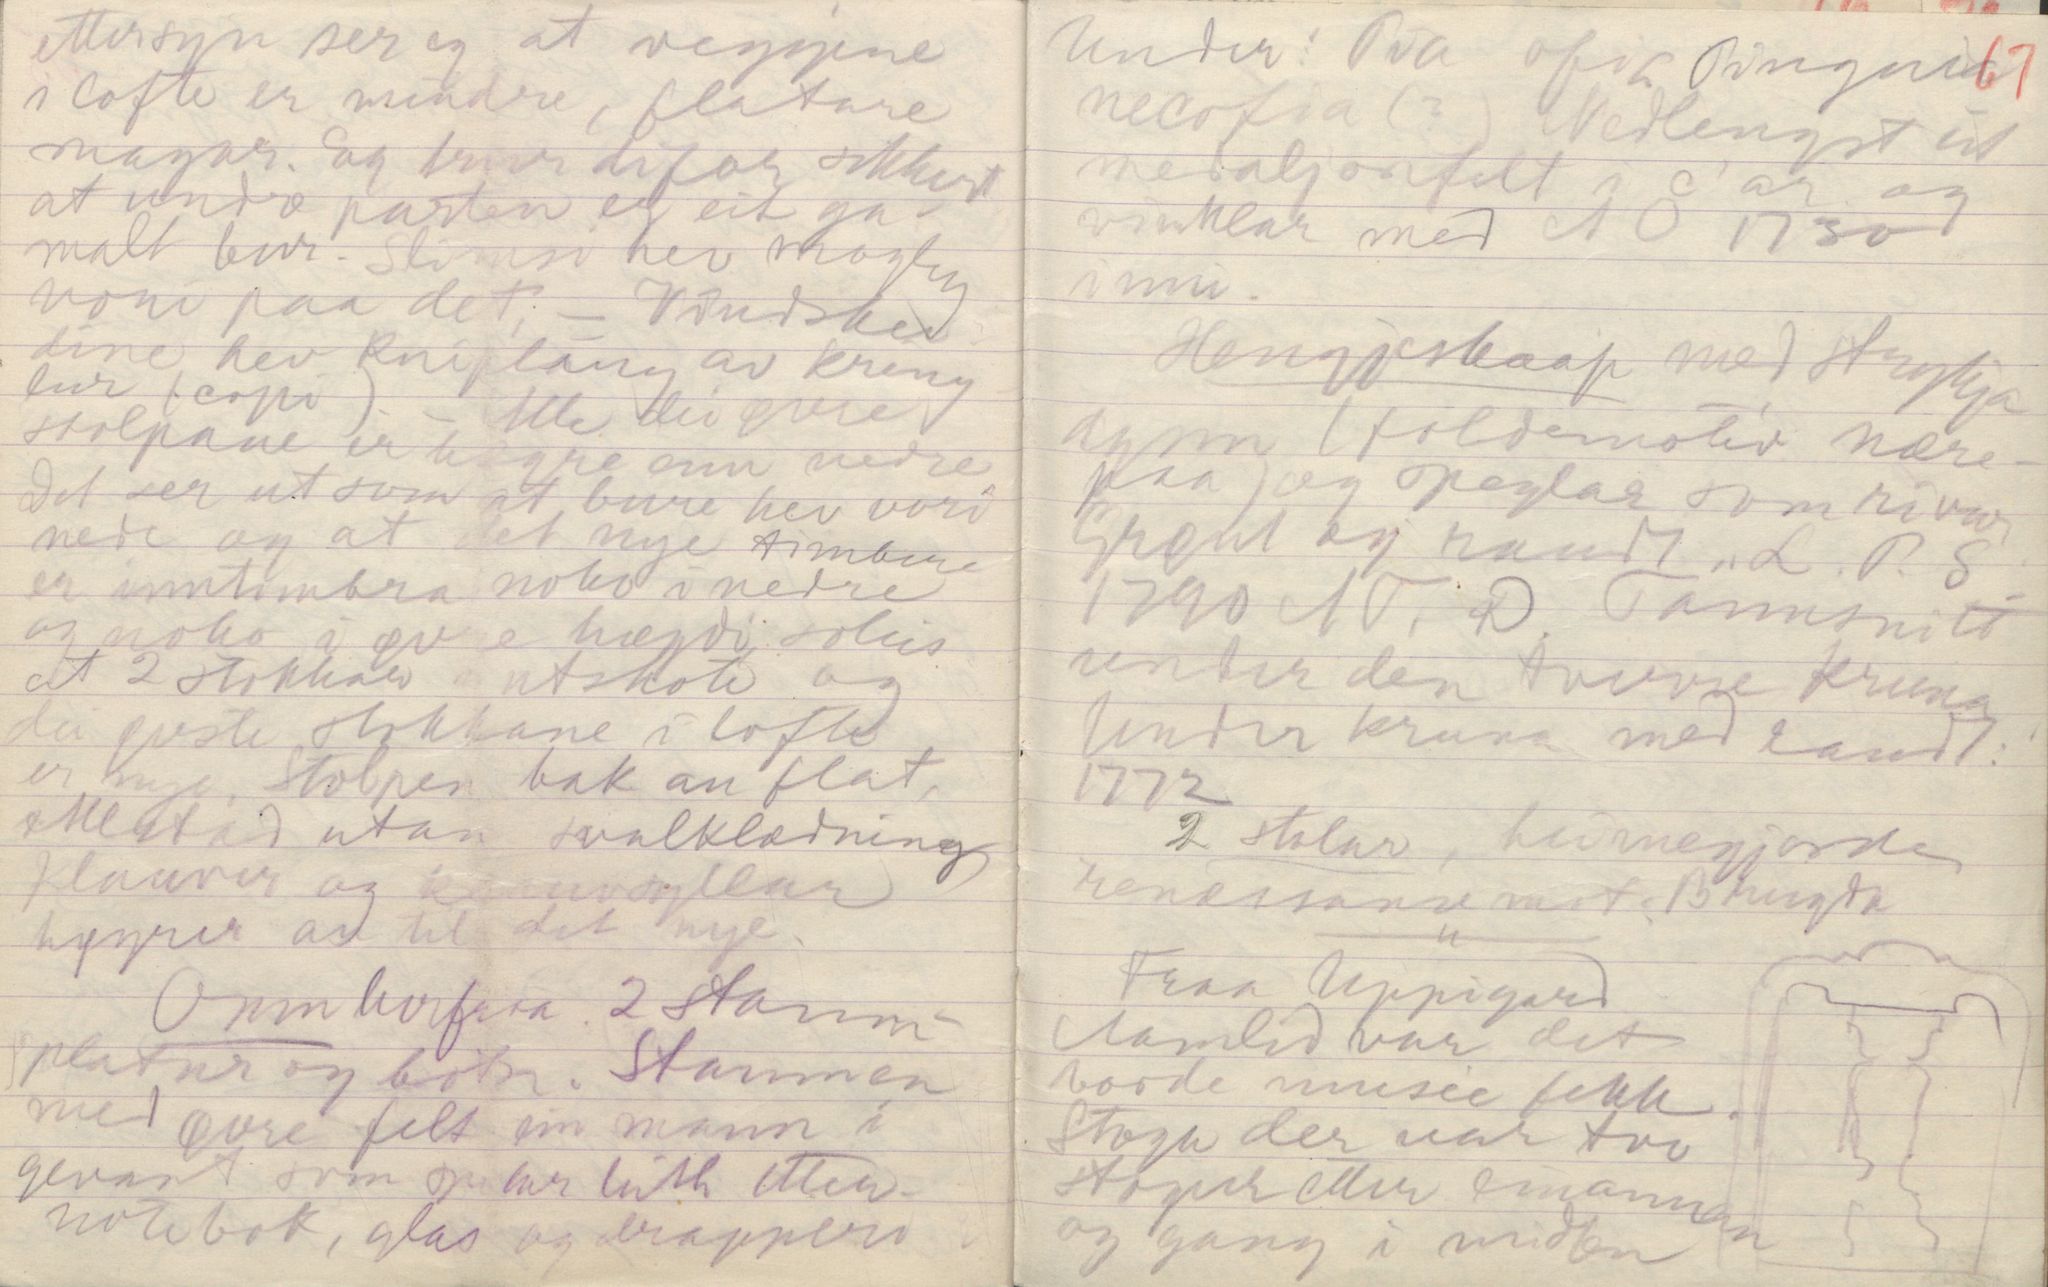 ettersyn ser eg at veggjene
i lofte er mindre, flatare
magar. Eg trur difor sikkert
at undre parten er eit ga-
malt bur. Slömsi hev mogleg
voni paa det. – Vindskei
dine hev kniplāng av kreng
lur (copi) – Alle dei övre
stolpane er högre enn nedre
Det ser ut som at bure hev vori
nede og at det nye timbere
er inntimbra noko i nedre
og noko i øvre högdi, soleis
at 2 stokkar utskote og
dei övste stokkane i lofte
er nye. Stolpen bak an flat.
Allstad utan svalklædning
Klauver og
höyrer av til det nye.
Omn herfraa. 2 Stamm-
platur og botn. Stammen
med øvre felt ein mann i
gevant som spelar luth etter
notebok, glas og drapperi
Under: Pia
necofia (?) Nedlengst eit
medaljonfelt i C'ar og
vinklar med NO 1730
inni.
Hengjeskaap med strykja
aynn (foldemotiv nære-
paa) og speglar som rivur
Grønt og raudt „L. P. S
1790 NT. D. Tannsnitt
under den tverre kruna
Under kruna med raudt:
1772
2 stolar, heimegjorde,
renæssanse mot. Brugda
Fraa Uppigard
Namlid var det
borde musée fekk.
Stoga der var tvo
stogur etter einannan
og gang i midten
67